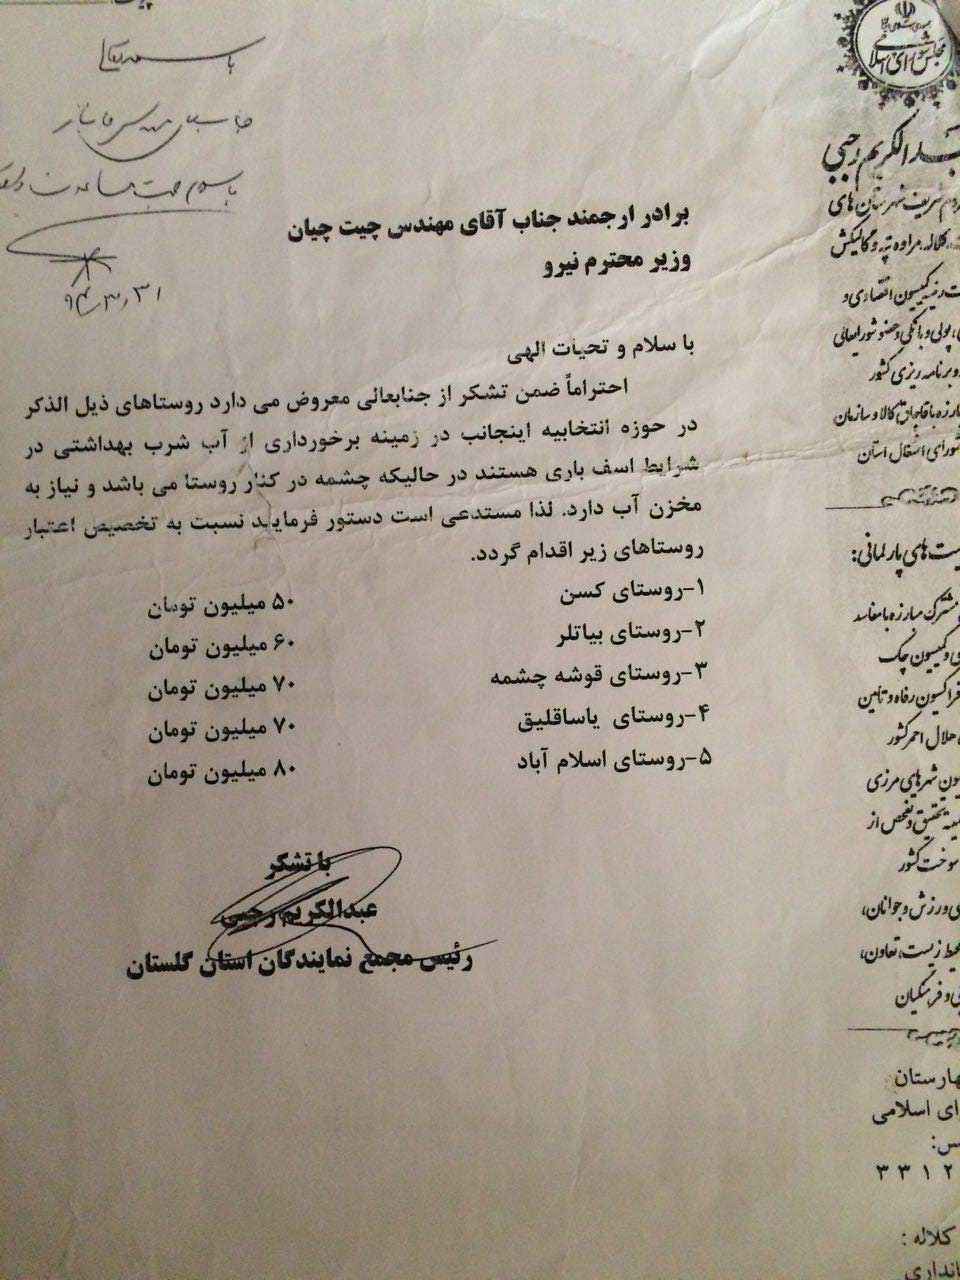 باسمه تعالی
با سلام جهت مساعدت
۹۴/۳/۳۱
مجلس شورای اسلامی
عبدالکریم رجبی
مردم شریف شهرستان های
کلاله، مراوه تپه و گالیکش
کمیسیون اقتصادی و
پولی و بانکی و عضو شورایعالی
و برنامه ریزی کشور
مبارزه با قاچاق کالا و سازمان
شورای اشتغال استان
پارلمانی:
مشترک مبارزه با مفاسد
و کمیسیون چک
فراکسیون رفاه و تامین
هلال احمر کشور
شهرهای مرزی
تحقیق و تفحص از
سوخت کشور
ورزش و جوانان،
محیط زیست، تعاون،
و فرهنگیان
هارستان
رای اسلامی
س:
۳۳۱۲
کلاله :
برادر ارجمند جناب آقای مهندس چیت چیان
وزیر محترم نیرو
با سلام و تحیات الهی
احتراماً ضمن تشکر از جنابعالی معروض می دارد روستاهای ذیل الذکر
در حوزه انتخابیه اینجانب در زمینه برخورداری از آب شرب بهداشتی در
شرایط اسف باری هستند در حالیکه چشمه در کنار روستا می باشد و نیاز به
مخزن آب دارد. لذا مستدعی است دستور فرماید نسبت به تخصیص اعتبار
روستاهای زیر اقدام گردد.
۱-روستای کسن ۵۰ میلیون تومان
۲-روستای بیاتلر ۶۰ میلیون تومان
۳-روستای قوشه چشمه ۷۰ میلیون تومان
۴-روستای یاساقلیق ۷۰ میلیون تومان
۵-روستای اسلام آباد ۸۰ میلیون تومان
با تشکر
عبدالکریم رجبی
رئیس مجمع نمایندگان استان گلستان